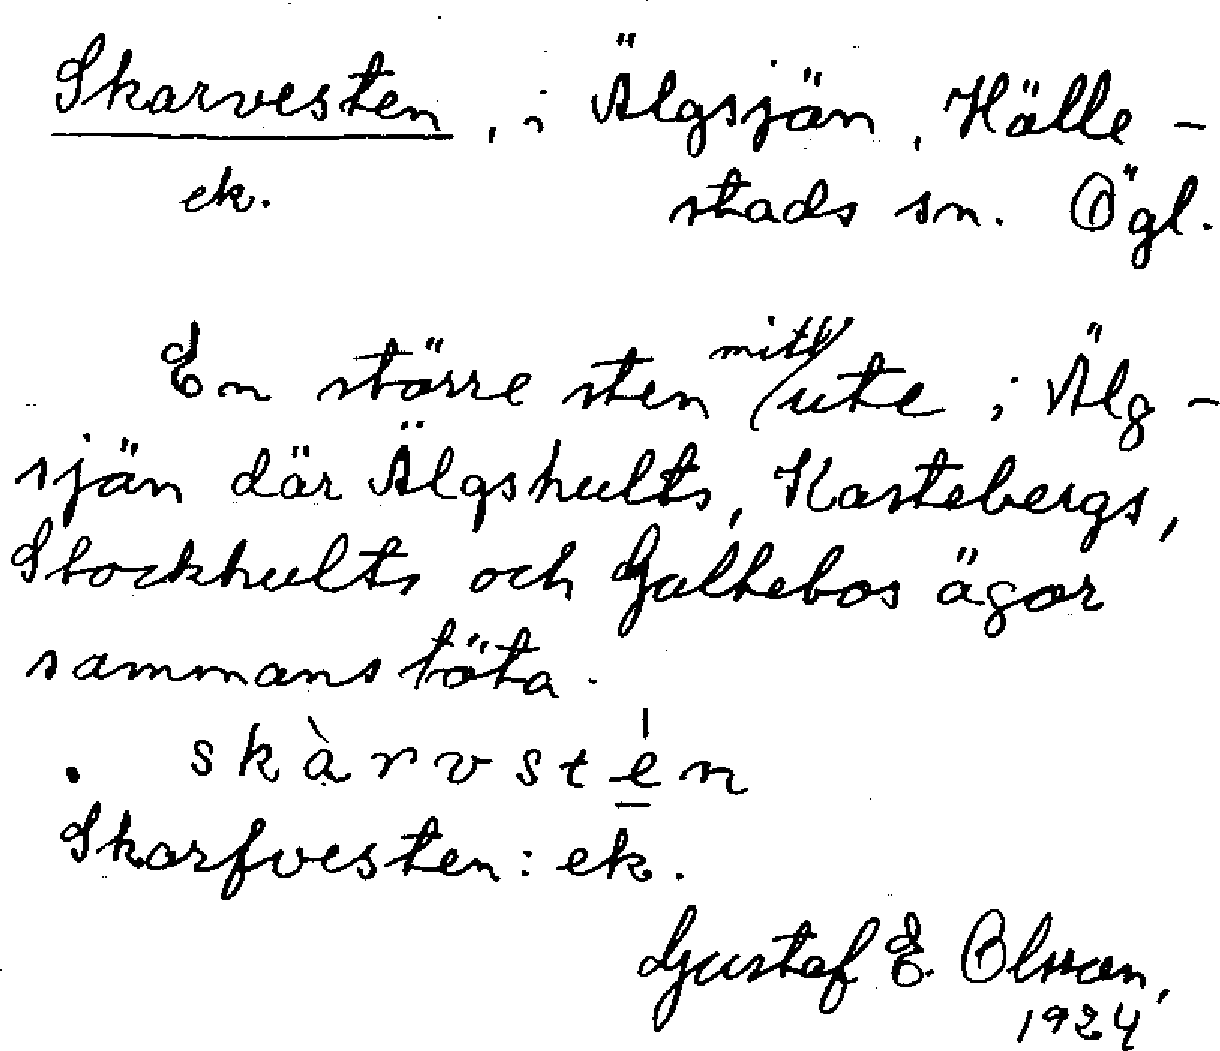 Skarvesten, i Älgsjön, Hälle-
ek. stads sn. Ögl.
En större sten mitt ute i Älg-
sjön där Älgshults, Kastebergs,
Stockhults och Galtebos ägor
sammanstöta.
. skàrvstén
Skarfvesten: ek.
Gustaf E. Olsson,
1924